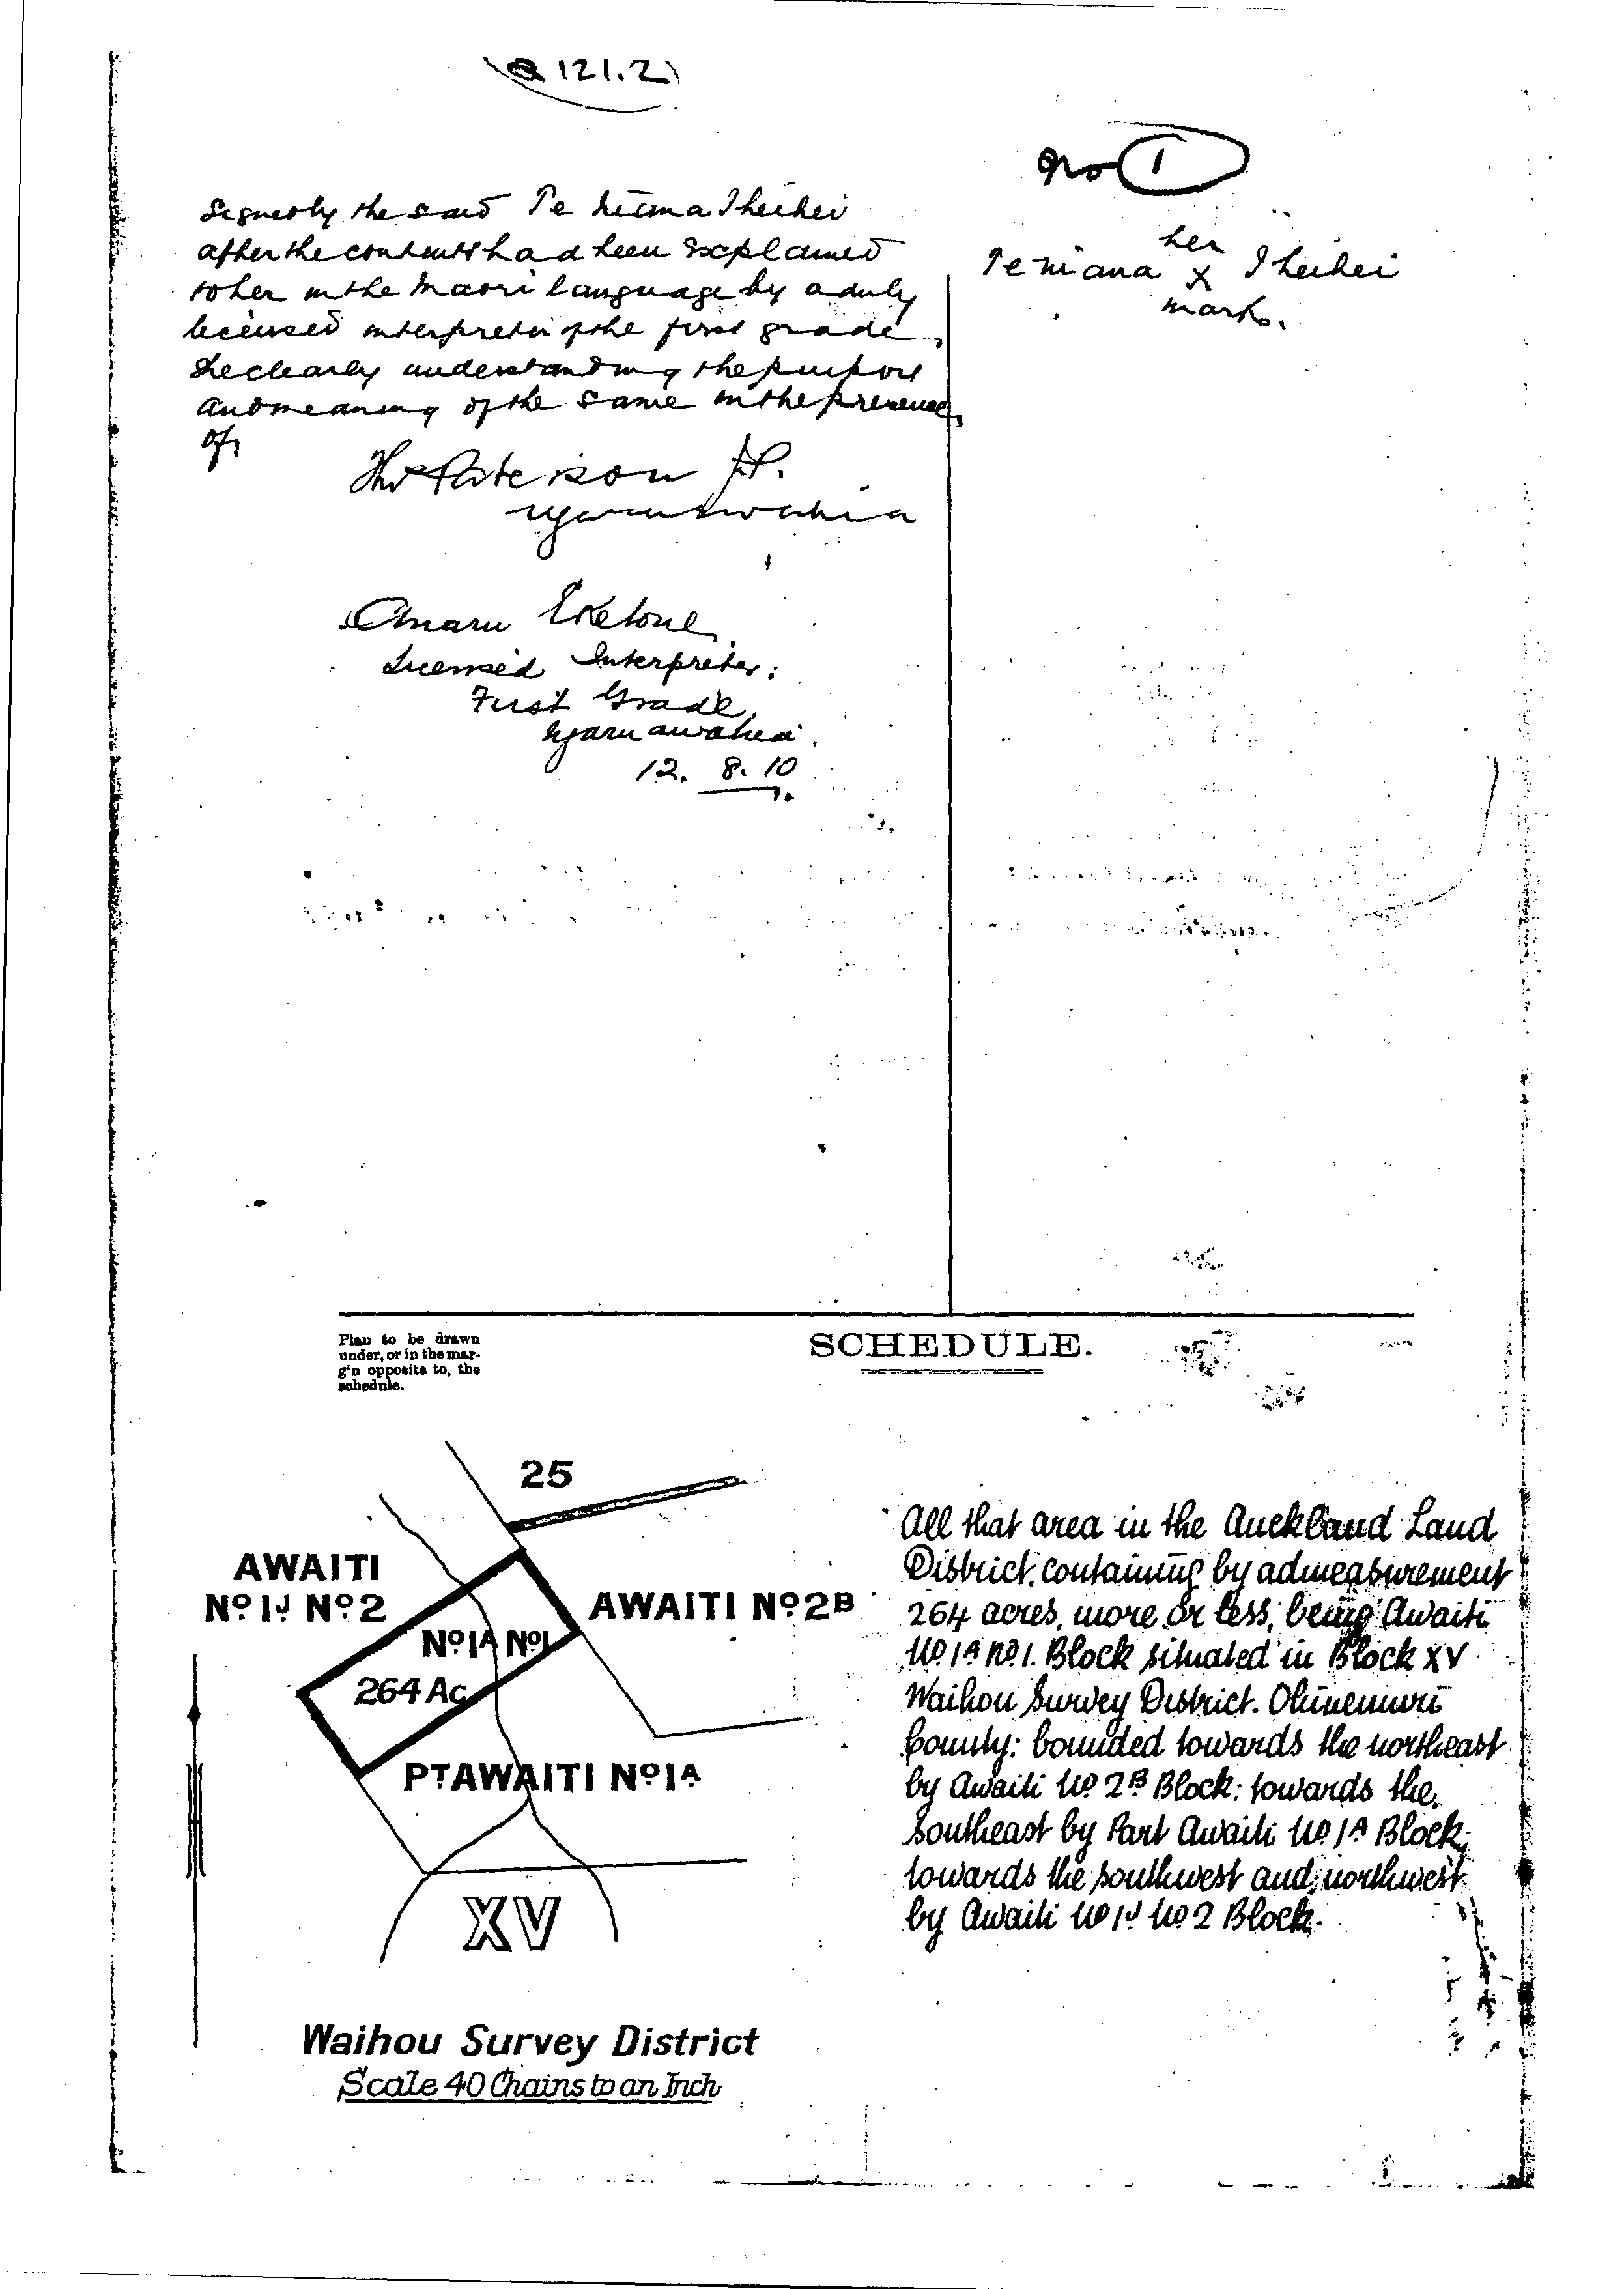 121.2
No 1
Signed by the said Te
after the contents had been explained
to her in the Maori language by a duly
licensed interpreter of the first grade,
she clearly understanding the purport
and meaning of the same in the presence
of,
her
X
mark.
Paterson J.P.
Ngaruawahia
Anaru Eketone
Licensed Interpreter:
First Grade,
Ngaruawahia.
12. 8. 10
Plan to be drawn
under, or in the mar-
g'n opposite to, the
schedule.
SCHEDULE.
25
AWAITI
No. 1J No. 2
AWAITI No. 2B
No. 1A No. 1
264 Ac
PT AWAITI No. 1A
XV
Waihou Survey District
Scale 40 Chains to an Inch
All that area in the Auckland Land
District, containing by admeasurement
264 acres, more or less, being Awaiti
No. 1A No. 1. Block situated in Block XV
Waihou Survey District. Ohinemuri
County: bounded towards the northeast
by Awaiti No. 2B Block: towards the
Southeast by Part Awaiti No. 1A Block;
towards the southwest and northwest
by Awaiti No. 1J No. 2 Block.